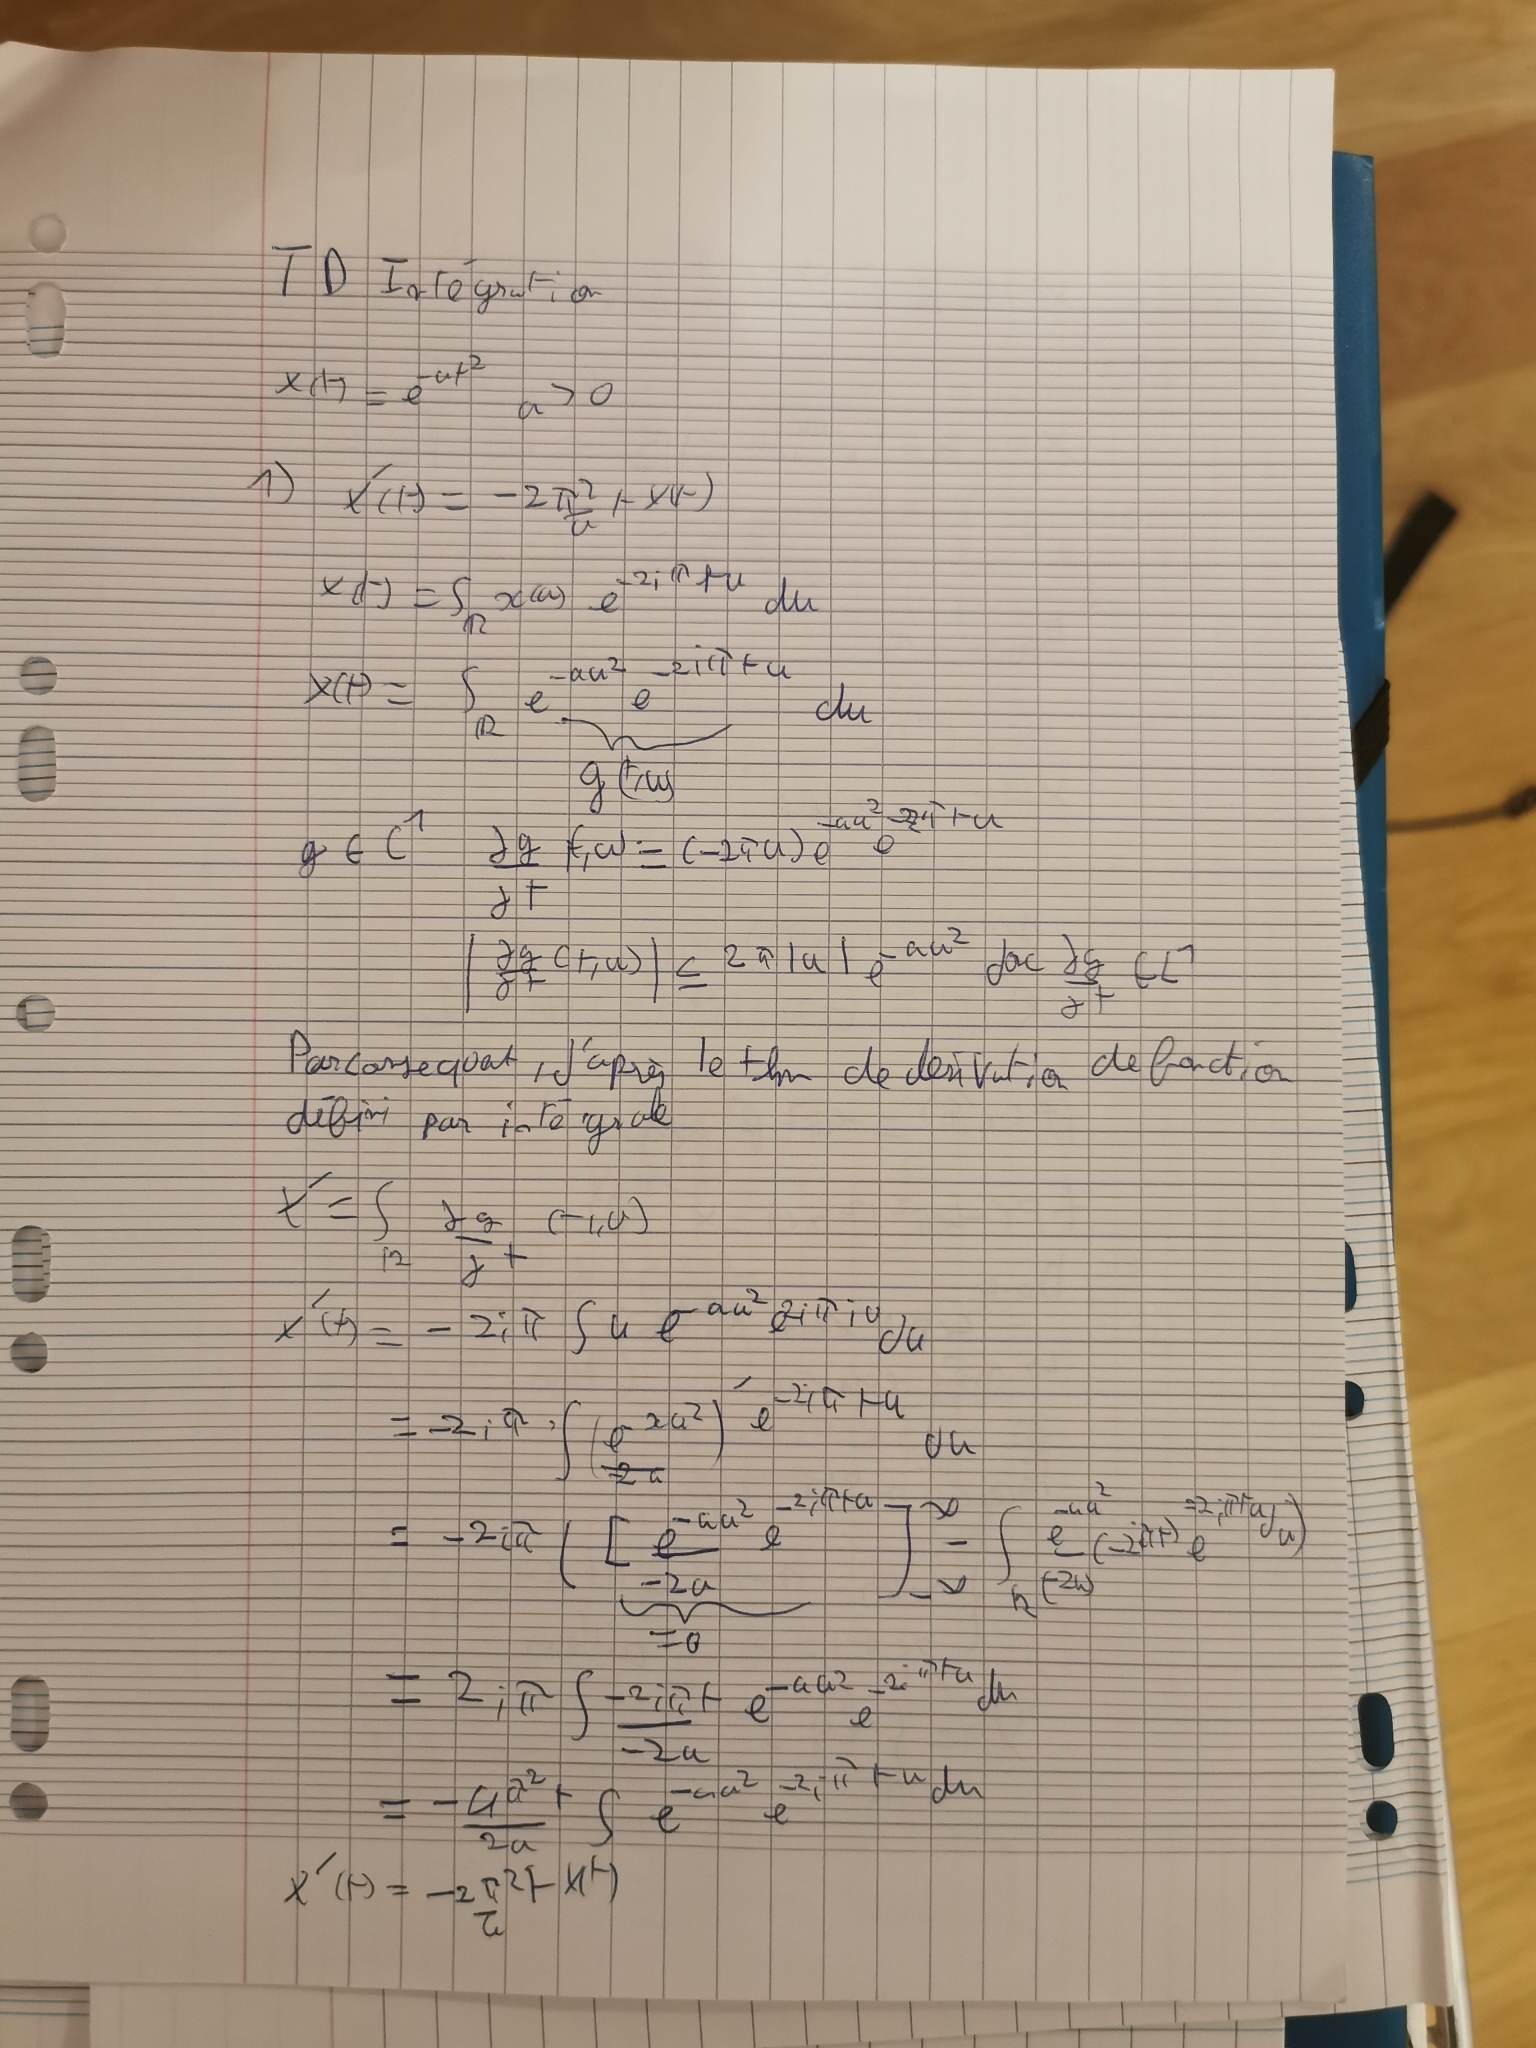 TD Intégration
x(t) = e^{-at²} a > 0
1) X'(t) = -2π²/a t X(t)
X(t) = ∫_ℝ x(u) e^{-2iπtu} du
X(t) = ∫_ℝ e^{-au²} e^{-2iπtu} du
g(t,u)
g ∈ C¹ ∂g/∂t (t,u) = (-2πu) e^{-au²} e^{-2πtu}
|∂g/∂t (t,u)| ≤ 2π|u| e^{-au²} donc ∂g/∂t ∈ L¹
Par consequent, d'après le thm de derivation de fonction
défini par intégrale
X' = ∫_ℝ ∂g/∂t (t,u)
X'(t) = -2iπ ∫ u e^{-au²} e^{2iπiu} du
= -2iπ ∫ (e^{-xu²}/-2a)' e^{-2iπtu} du
= -2iπ ( [ e^{-au²}/-2a e^{-2iπtu} ]_{-∞}^{∞} - ∫_ℝ e^{-au²}/(-2a) (-2iπt) e^{-2iπtu} du )
= 0
= 2iπ ∫ -2iπt/-2a e^{-au²} e^{-2iπtu} du
= -4π²t/2a ∫ e^{-au²} e^{-2iπtu} du
X'(t) = -2π²/a t X(t)